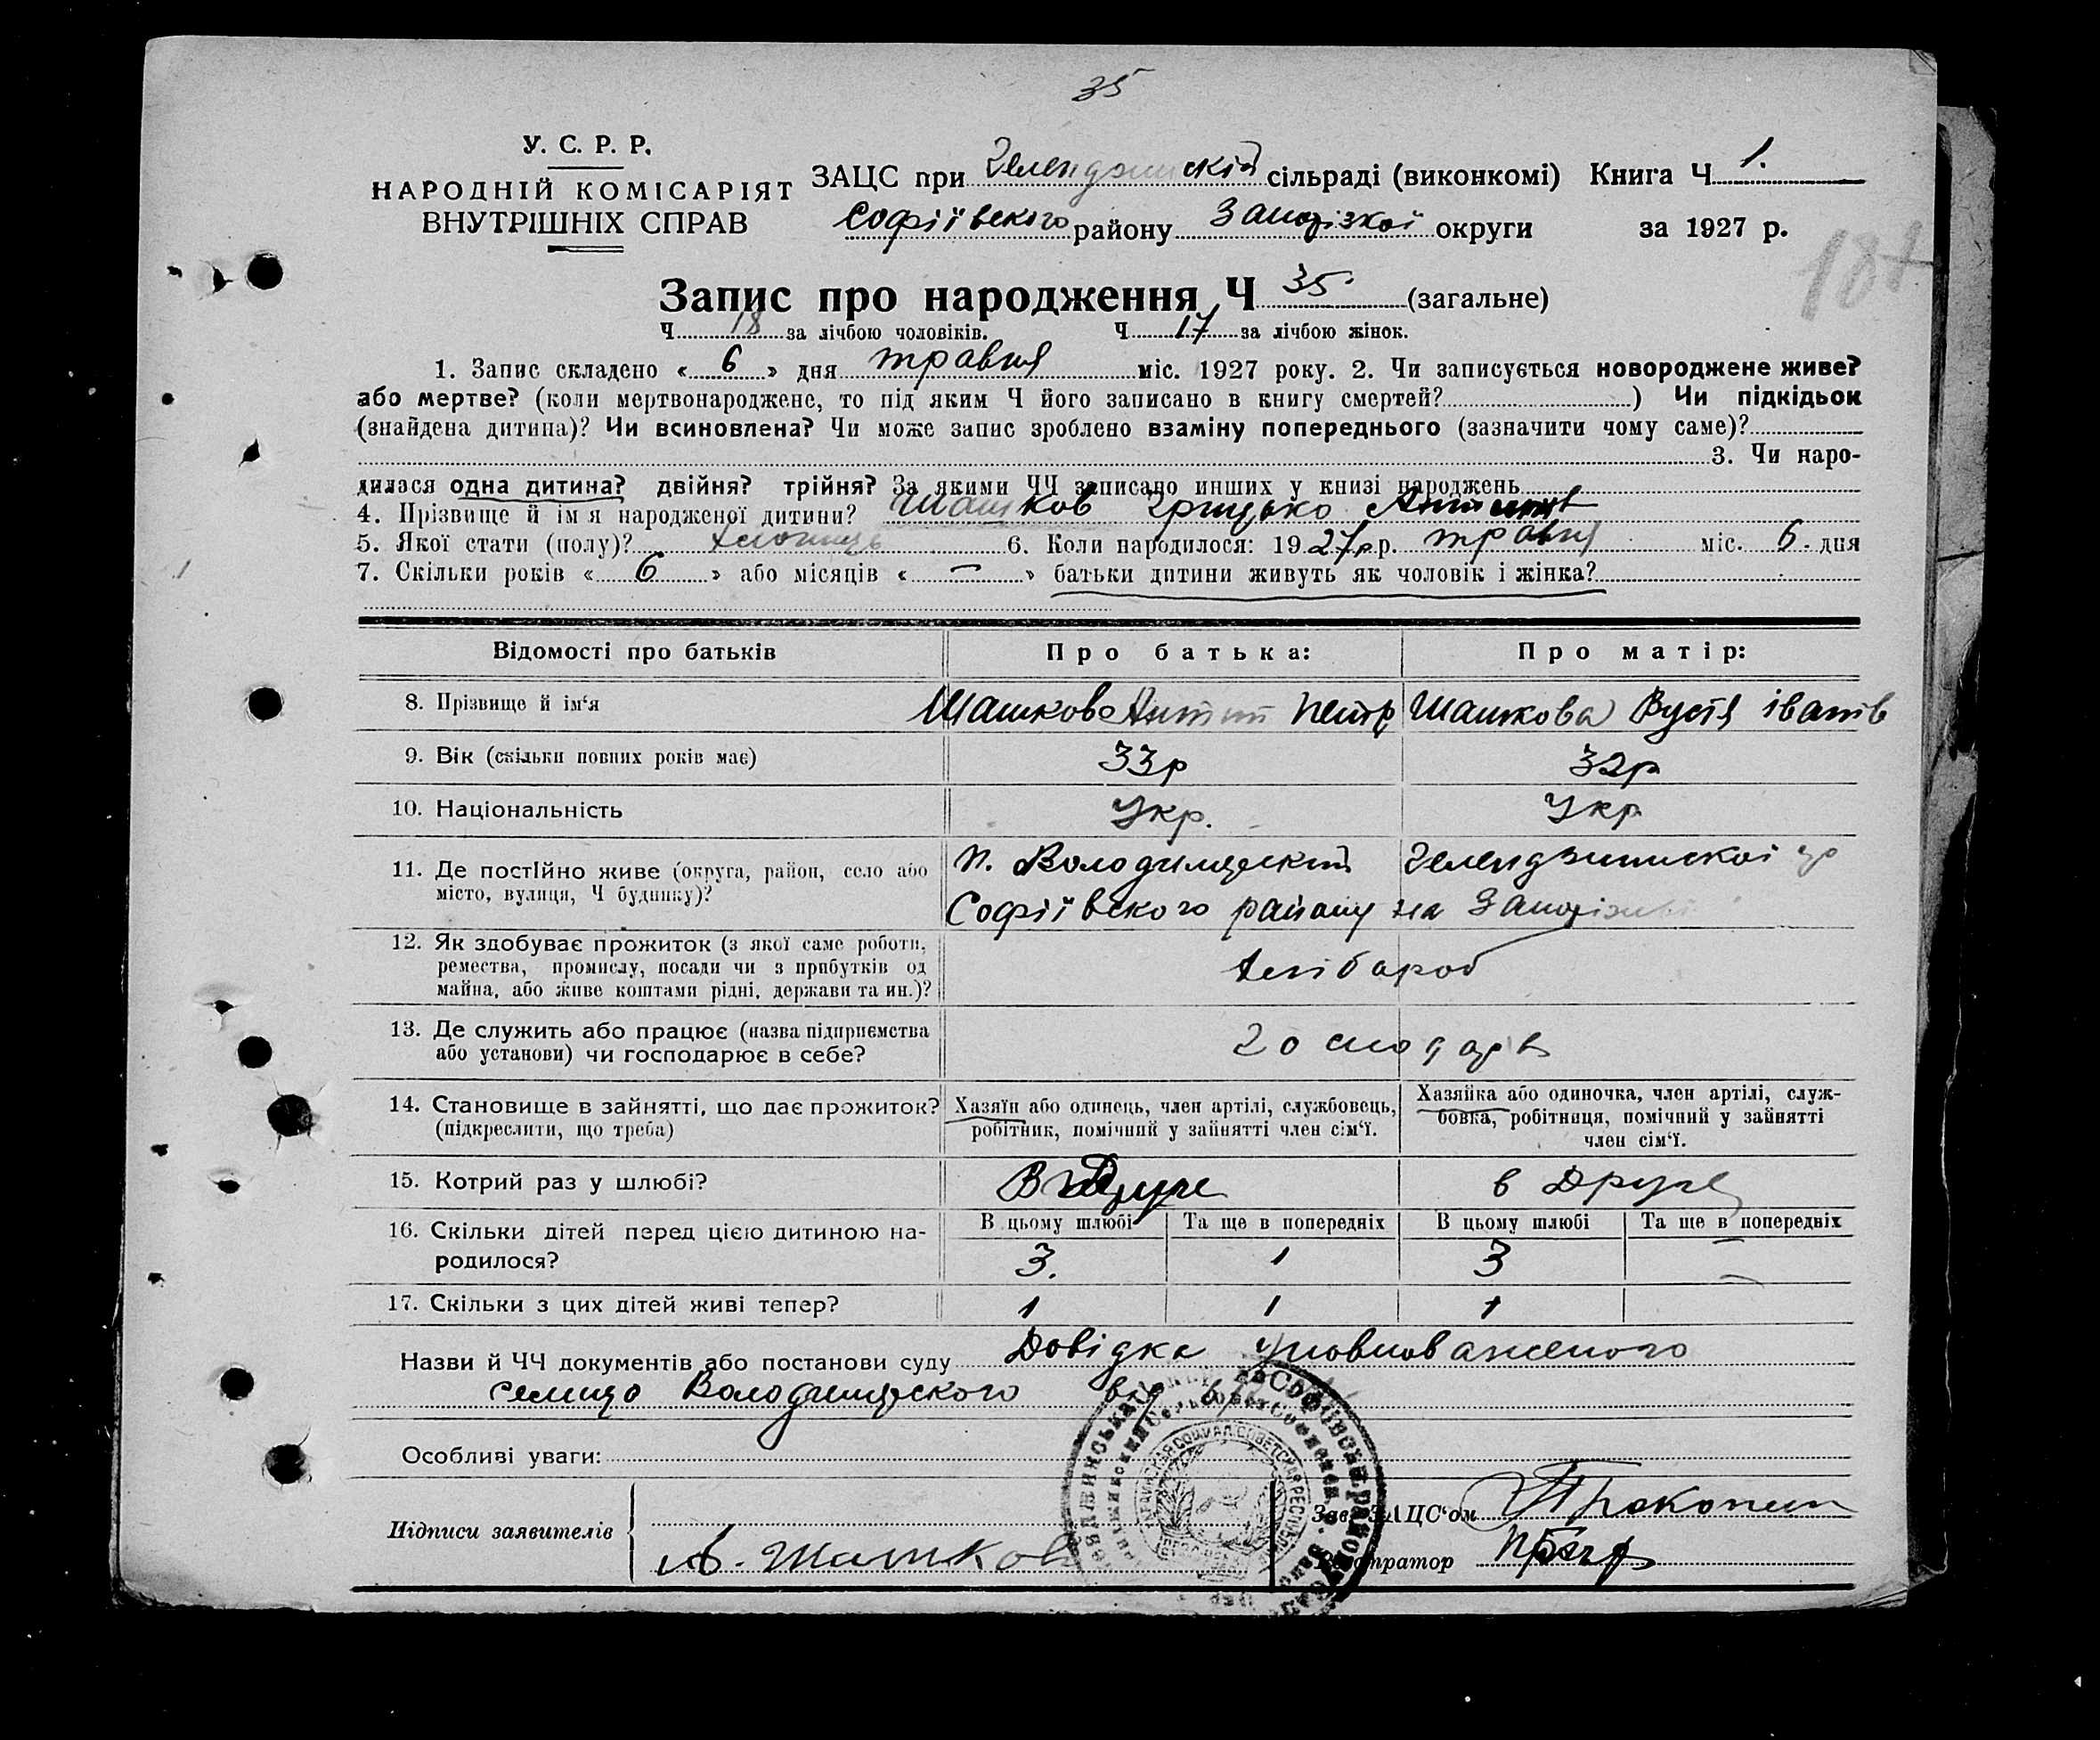 35
У. С. Р. Р.
НАРОДНІЙ КОМІСАРІЯТ
ВНУТРІШНІХ СПРАВ
ЗАЦС при сільраді (виконкомі) Книга Ч 1.
Софіївского району округи за 1927 р.
Запис про народження Ч 35 (загальне)
Ч 18 за лічбою чоловіків. Ч 17 за лічбою жінок.
1. Запис складено « 6 » дня травня міс. 1927 року. 2. Чи записується новороджене живе?
або мертве? (коли мертвонароджене, то під яким Ч його записано в книгу смертей? ) Чи підкідьок
(знайдена дитина)? Чи всиновлена? Чи може запис зроблено взаміну попереднього (зазначити чому саме)?
3. Чи наро-
дилася одна дитина? двійня? трійня? За якими ЧЧ записано инших у книзі народжень
4. Прізвище й ім я народженої дитини? Шашков Грицько
5. Якої стати (полу)? хлопець 6. Коли народилося: 1927 р. травня міс. 6. дня
7. Скільки років « 6 » або місяців « — » батьки дитини живуть як чоловік і жінка?
Відомості про батьків Про батька: Про матір:
8. Прізвище й ім‘я Шашков Антип Петр Шашкова Вустя Іванів
9. Вік (скільки повних років має) 33р 32р
10. Національність Укр. Укр
11. Де постійно живе (округа, район, село або
місто, вулиця, Ч будинку)?
Софіївского району на
12. Як здобуває прожиток (з якої саме роботи,
ремества, промислу, посади чи з прибутків од
майна, або живе коштами рідні, держави та ин.)?
хлібароб
13. Де служить або працює (назва підприємства
або установи) чи господарює в себе?
14. Становище в зайнятті, що дає прожиток?
(підкреслити, що треба)
Хазяїн або одинець, член артілі, службовець,
робітник, помічний у зайнятті член сім‘ї.
Хазяйка або одиночка, член артілі, служ-
бовка, робітниця, помічний у зайнятті
член сім‘ї.
15. Котрий раз у шлюбі? в Друге
16. Скільки дітей перед цією дитиною на-
родилося?
В цьому шлюбі Та ще в попередніх В цьому шлюбі Та ще в попередніх
3. 1 3 —
17. Скільки з цих дітей живі тепер? 1 1 1
Назви й ЧЧ документів або постанови суду Довідка уповноваженого
селищо
Особливі уваги:
Підписи заявителів
А. Шашков
Зав. ЗАЦС‘ом
Реєстратор